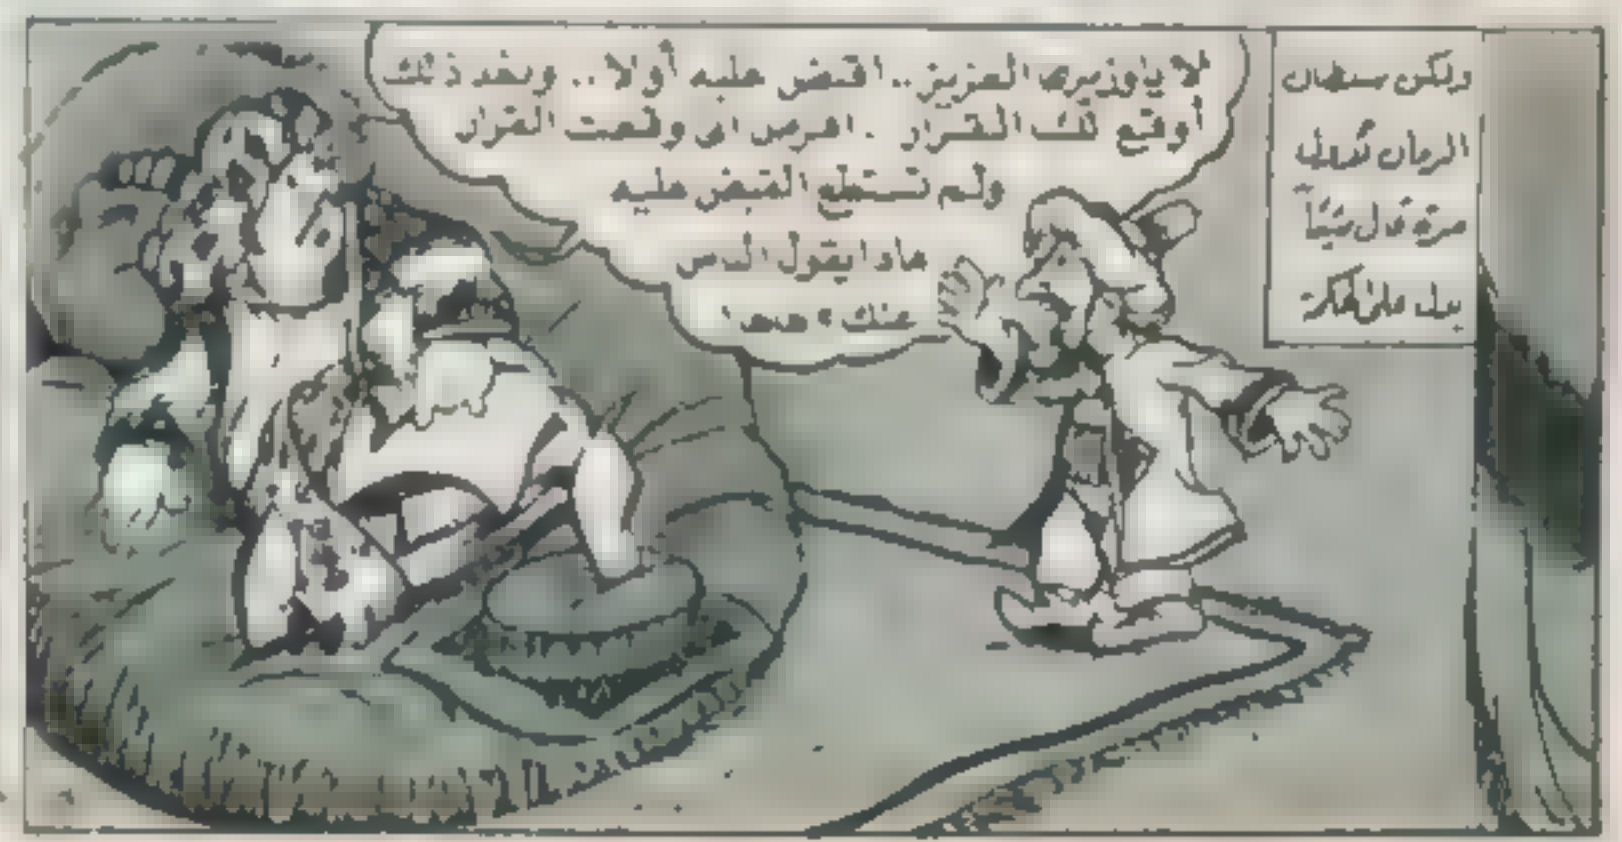 ولكن سلطان
الزمان لأول
مرة قال شيئاً
يدل على الحكمة
لا يا وزيرى العزيز.. اقبض عليه أولا.. وبعد ذلك
أوقع لك القرار. افرض انى وقعت القرار
ولم تستطع القبض عليه
ماذا يقول الناس
عنك ؟